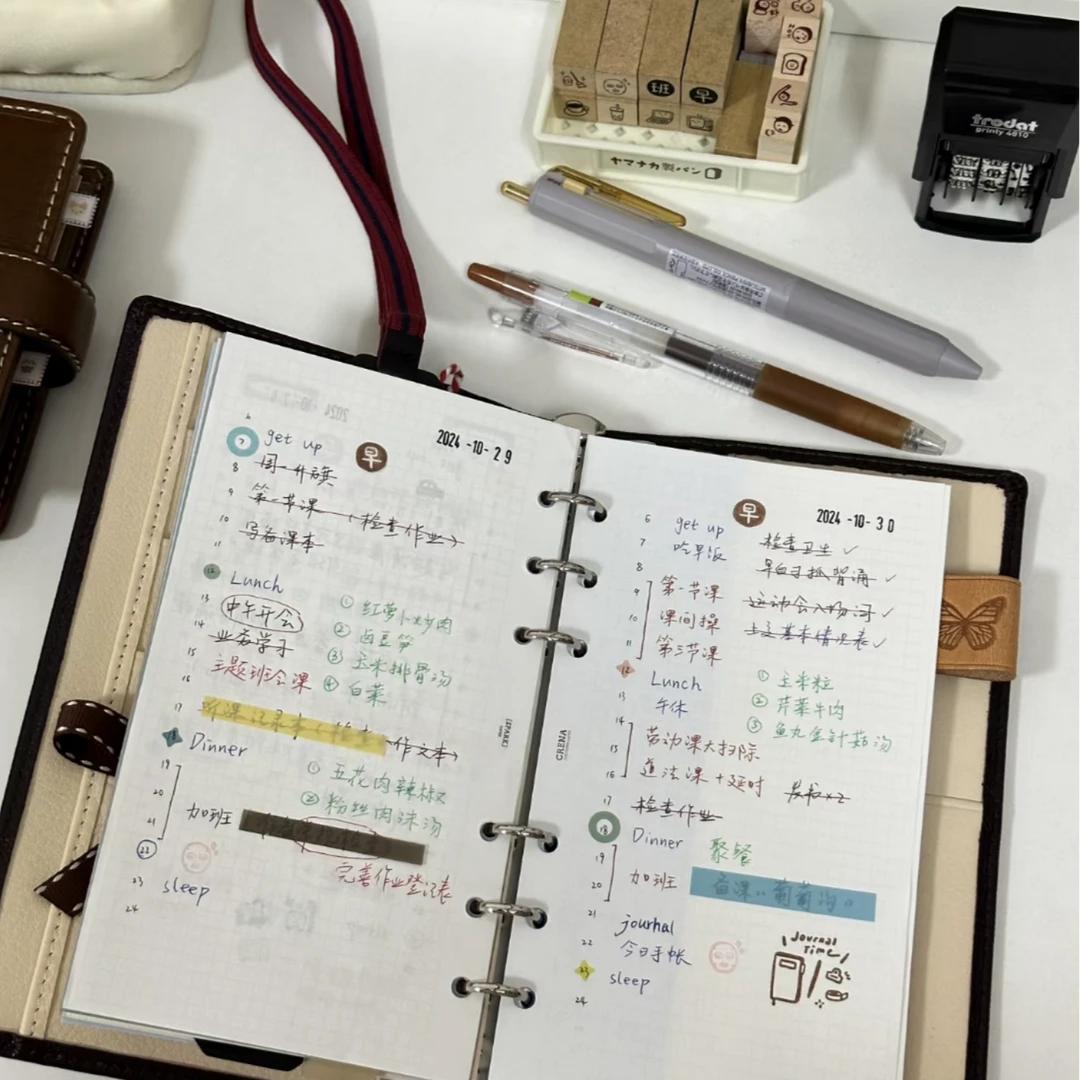 班
早
ヤマナカ製パン
trodat
printy 4810
2024-10-29
早
6
7 get up
8 周一升旗
9 第一节课 (检查作业)
10 写备课本
11
12 Lunch
13 中午开会
① 红萝卜炒肉
14 业务学习
② 卤豆笋
15 主题班会课
③ 玉米排骨汤
④ 白菜
16
17 听课记录本(检查作文本)
18 Dinner
19
① 五花肉辣椒
20
② 粉丝肉沫汤
21 加班
22
完善作业登记表
23 sleep
24
2024-10-30
早
6 get up
检查卫生 ✓
7 吃早饭
早自习抓背诵 ✓
8
9 第一节课
运动会入场词 ✓
10 课间操
上交基本情况表 ✓
11 第三节课
12 Lunch
① 玉米粒
13 午休
② 芹菜牛肉
14
③ 鱼丸金针菇汤
15 劳动课大扫除
16 道法课+延时
17 检查作业
18 Dinner 聚餐
19
20 加班 备课《葡萄沟》
21 journal
22 今日手帐
23 sleep
24
Journal
Time